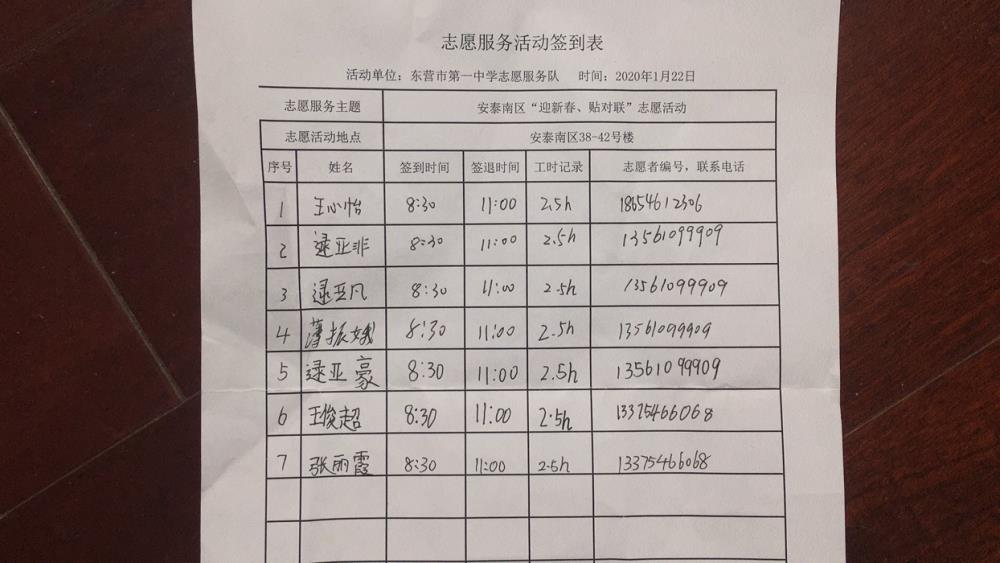 志愿服务活动签到表
活动单位：东营市第一中学志愿服务队 时间：2020年1月22日
志愿服务主题 安泰南区“迎新春、贴对联”志愿活动
志愿活动地点 安泰南区38-42号楼
序号 姓名 签到时间 签退时间 工时记录 志愿者编号，联系电话
1 王心怡 8:30 11:00 2.5h 18654612306
2 逯亚非 8:30 11:00 2.5h 13561099909
3 逯亚凡 8:30 11:00 2.5h 13561099909
4 薄振娥 8:30 11:00 2.5h 13561099909
5 逯亚豪 8:30 11:00 2.5h 13561099909
6 王俊超 8:30 11:00 2.5h 13375466068
7 张丽霞 8:30 11:00 2.5h 13375466068